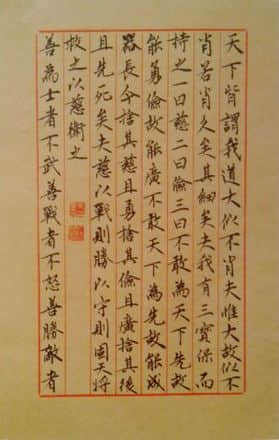 天下皆謂我道大似不肖夫惟大故似不
肖若肖久矣其細矣夫我有三寶保而
持之一曰慈二曰儉三曰不敢為天下先故
能勇儉故能廣不敢天下為先故能成
器長今捨其慈且勇捨其儉且廣捨其後
且先死矣夫慈以戰則勝以守則固天將
救之以慈衛之
善為士者不武善戰者不怒善勝敵者